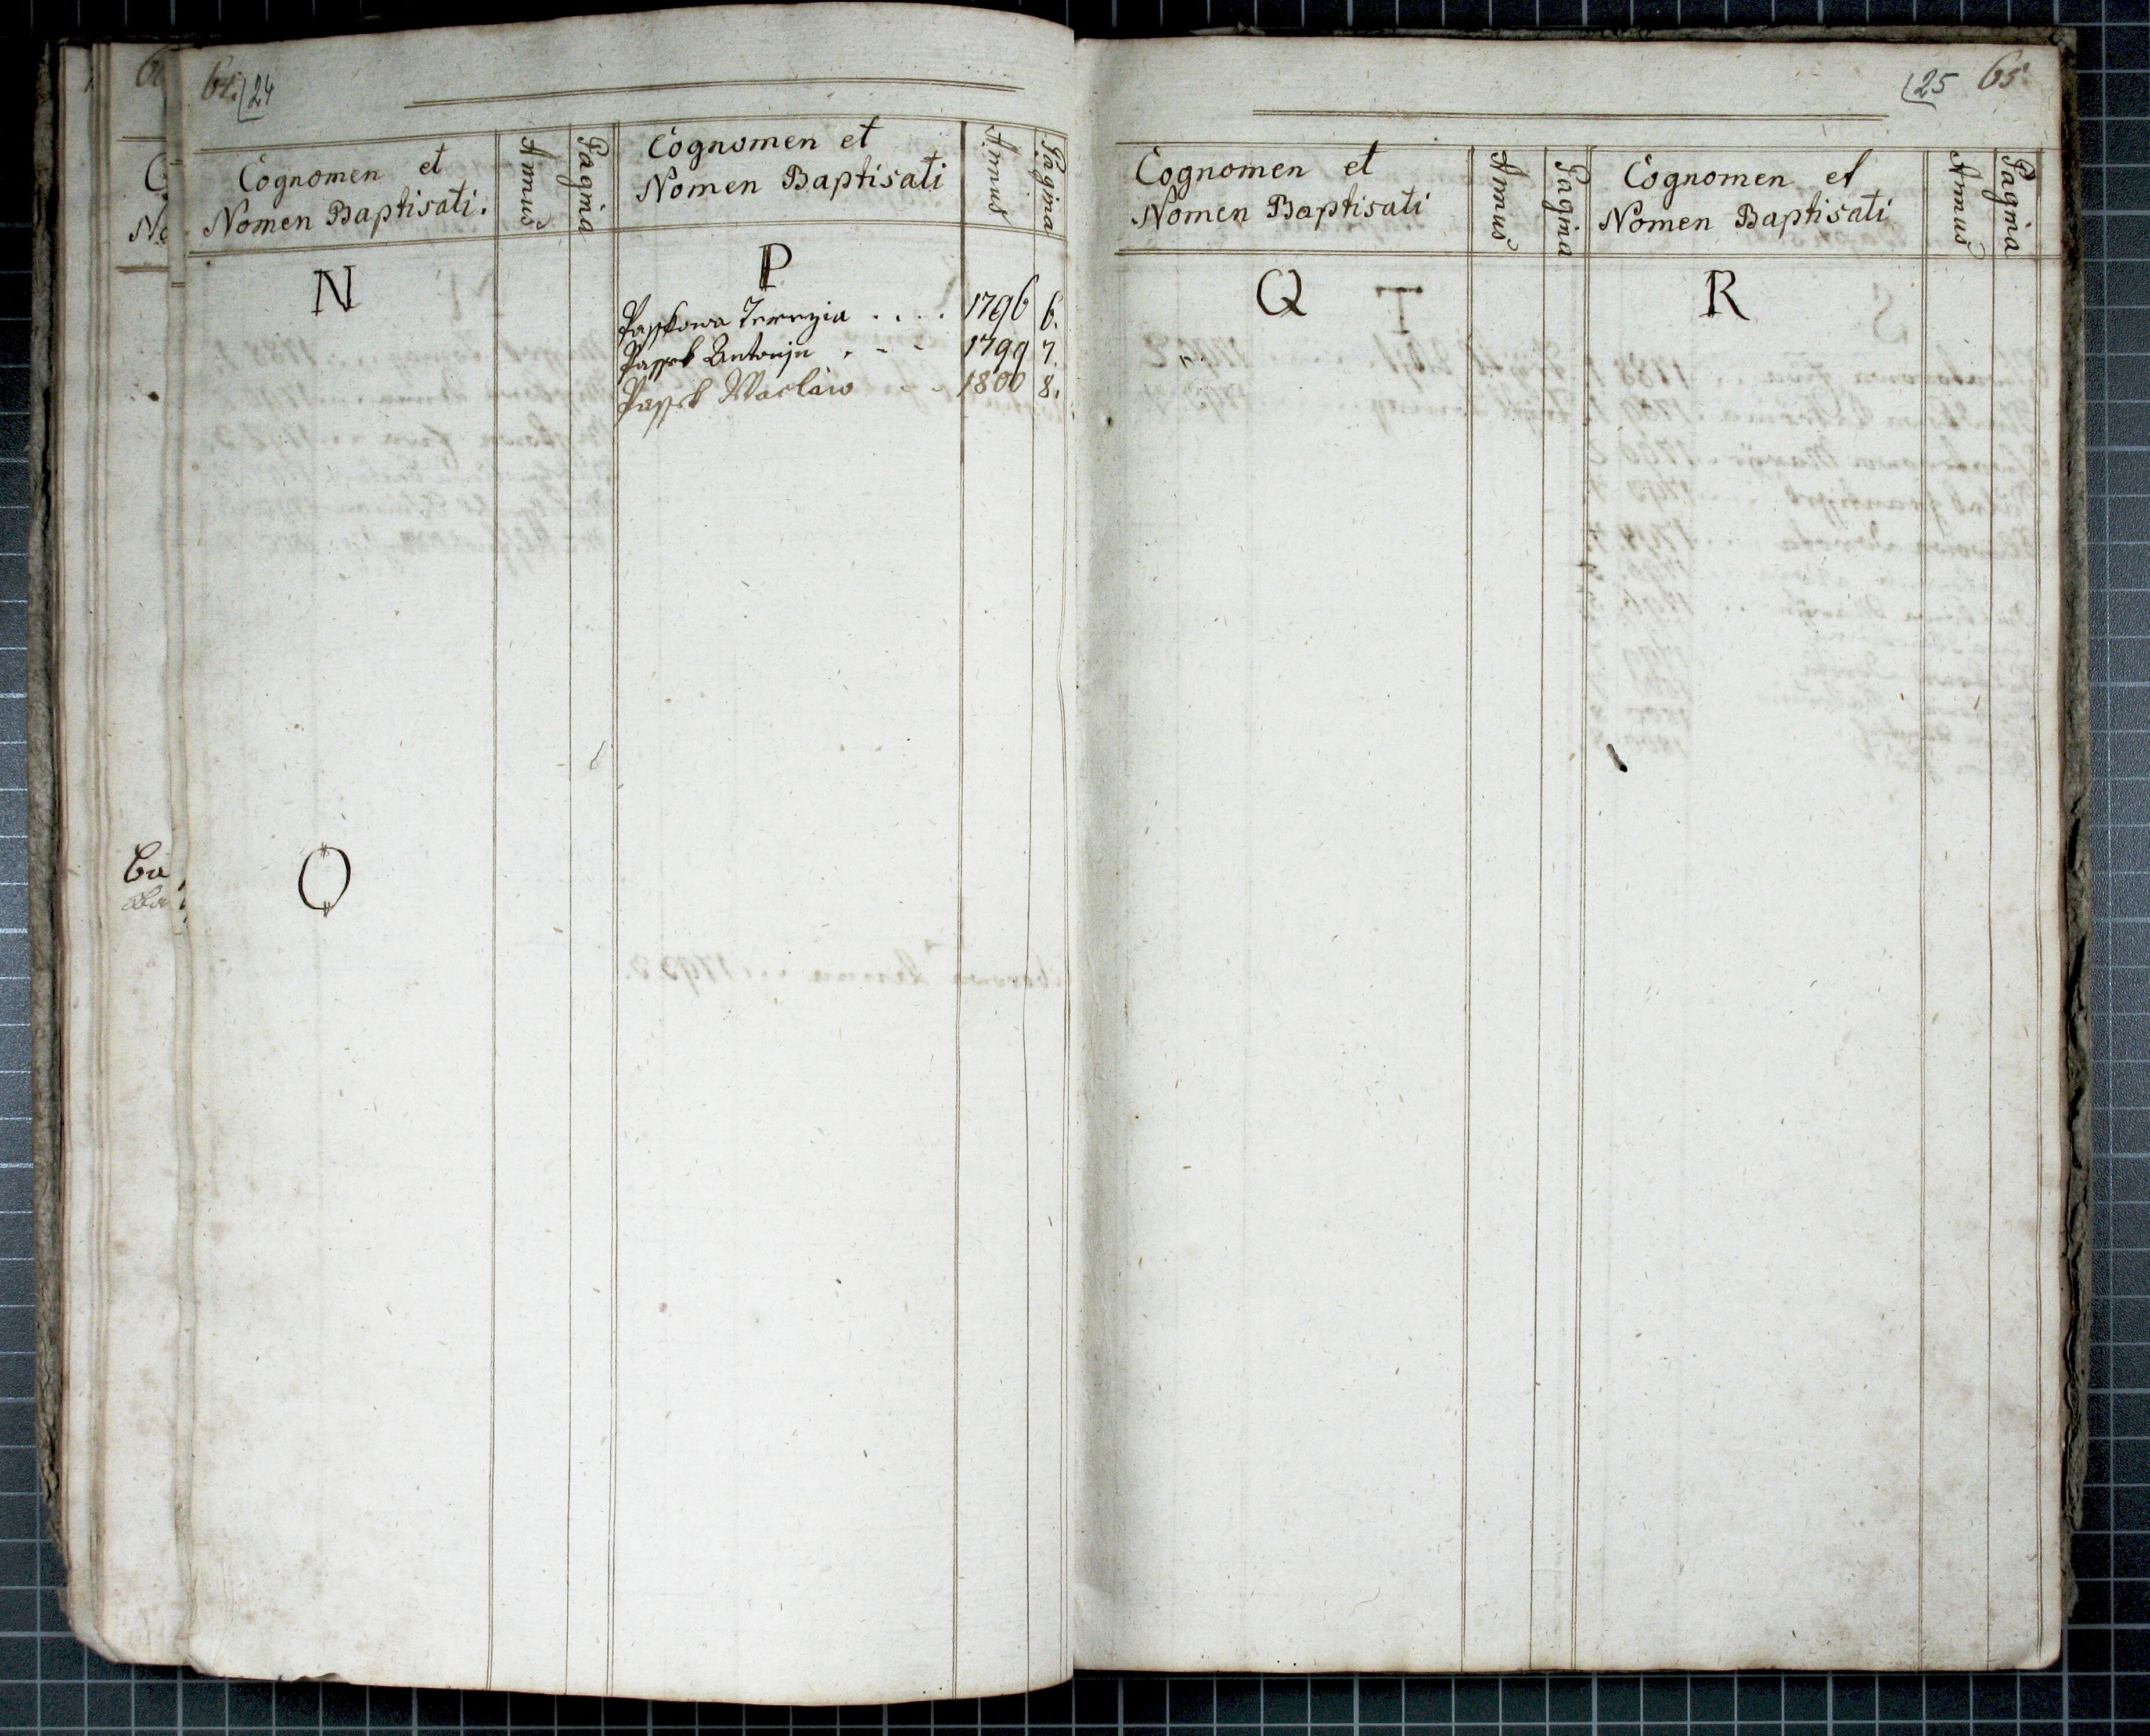 64. 24
Cognomen et
Nomen Baptisati.
Annus
Pagina
N
O
Cognomen et
Nomen Baptisati
Annus
Pagina
P
Terezia . . . . 1796 6.
Antonín . - - 1799 7.
Waclaw - - 1800 8.
25 65
Cognomen et
Nomen Baptisati
Annus
Pagina
Q
Cognomen et
Nomen Baptisati
Annus
Pagina
R